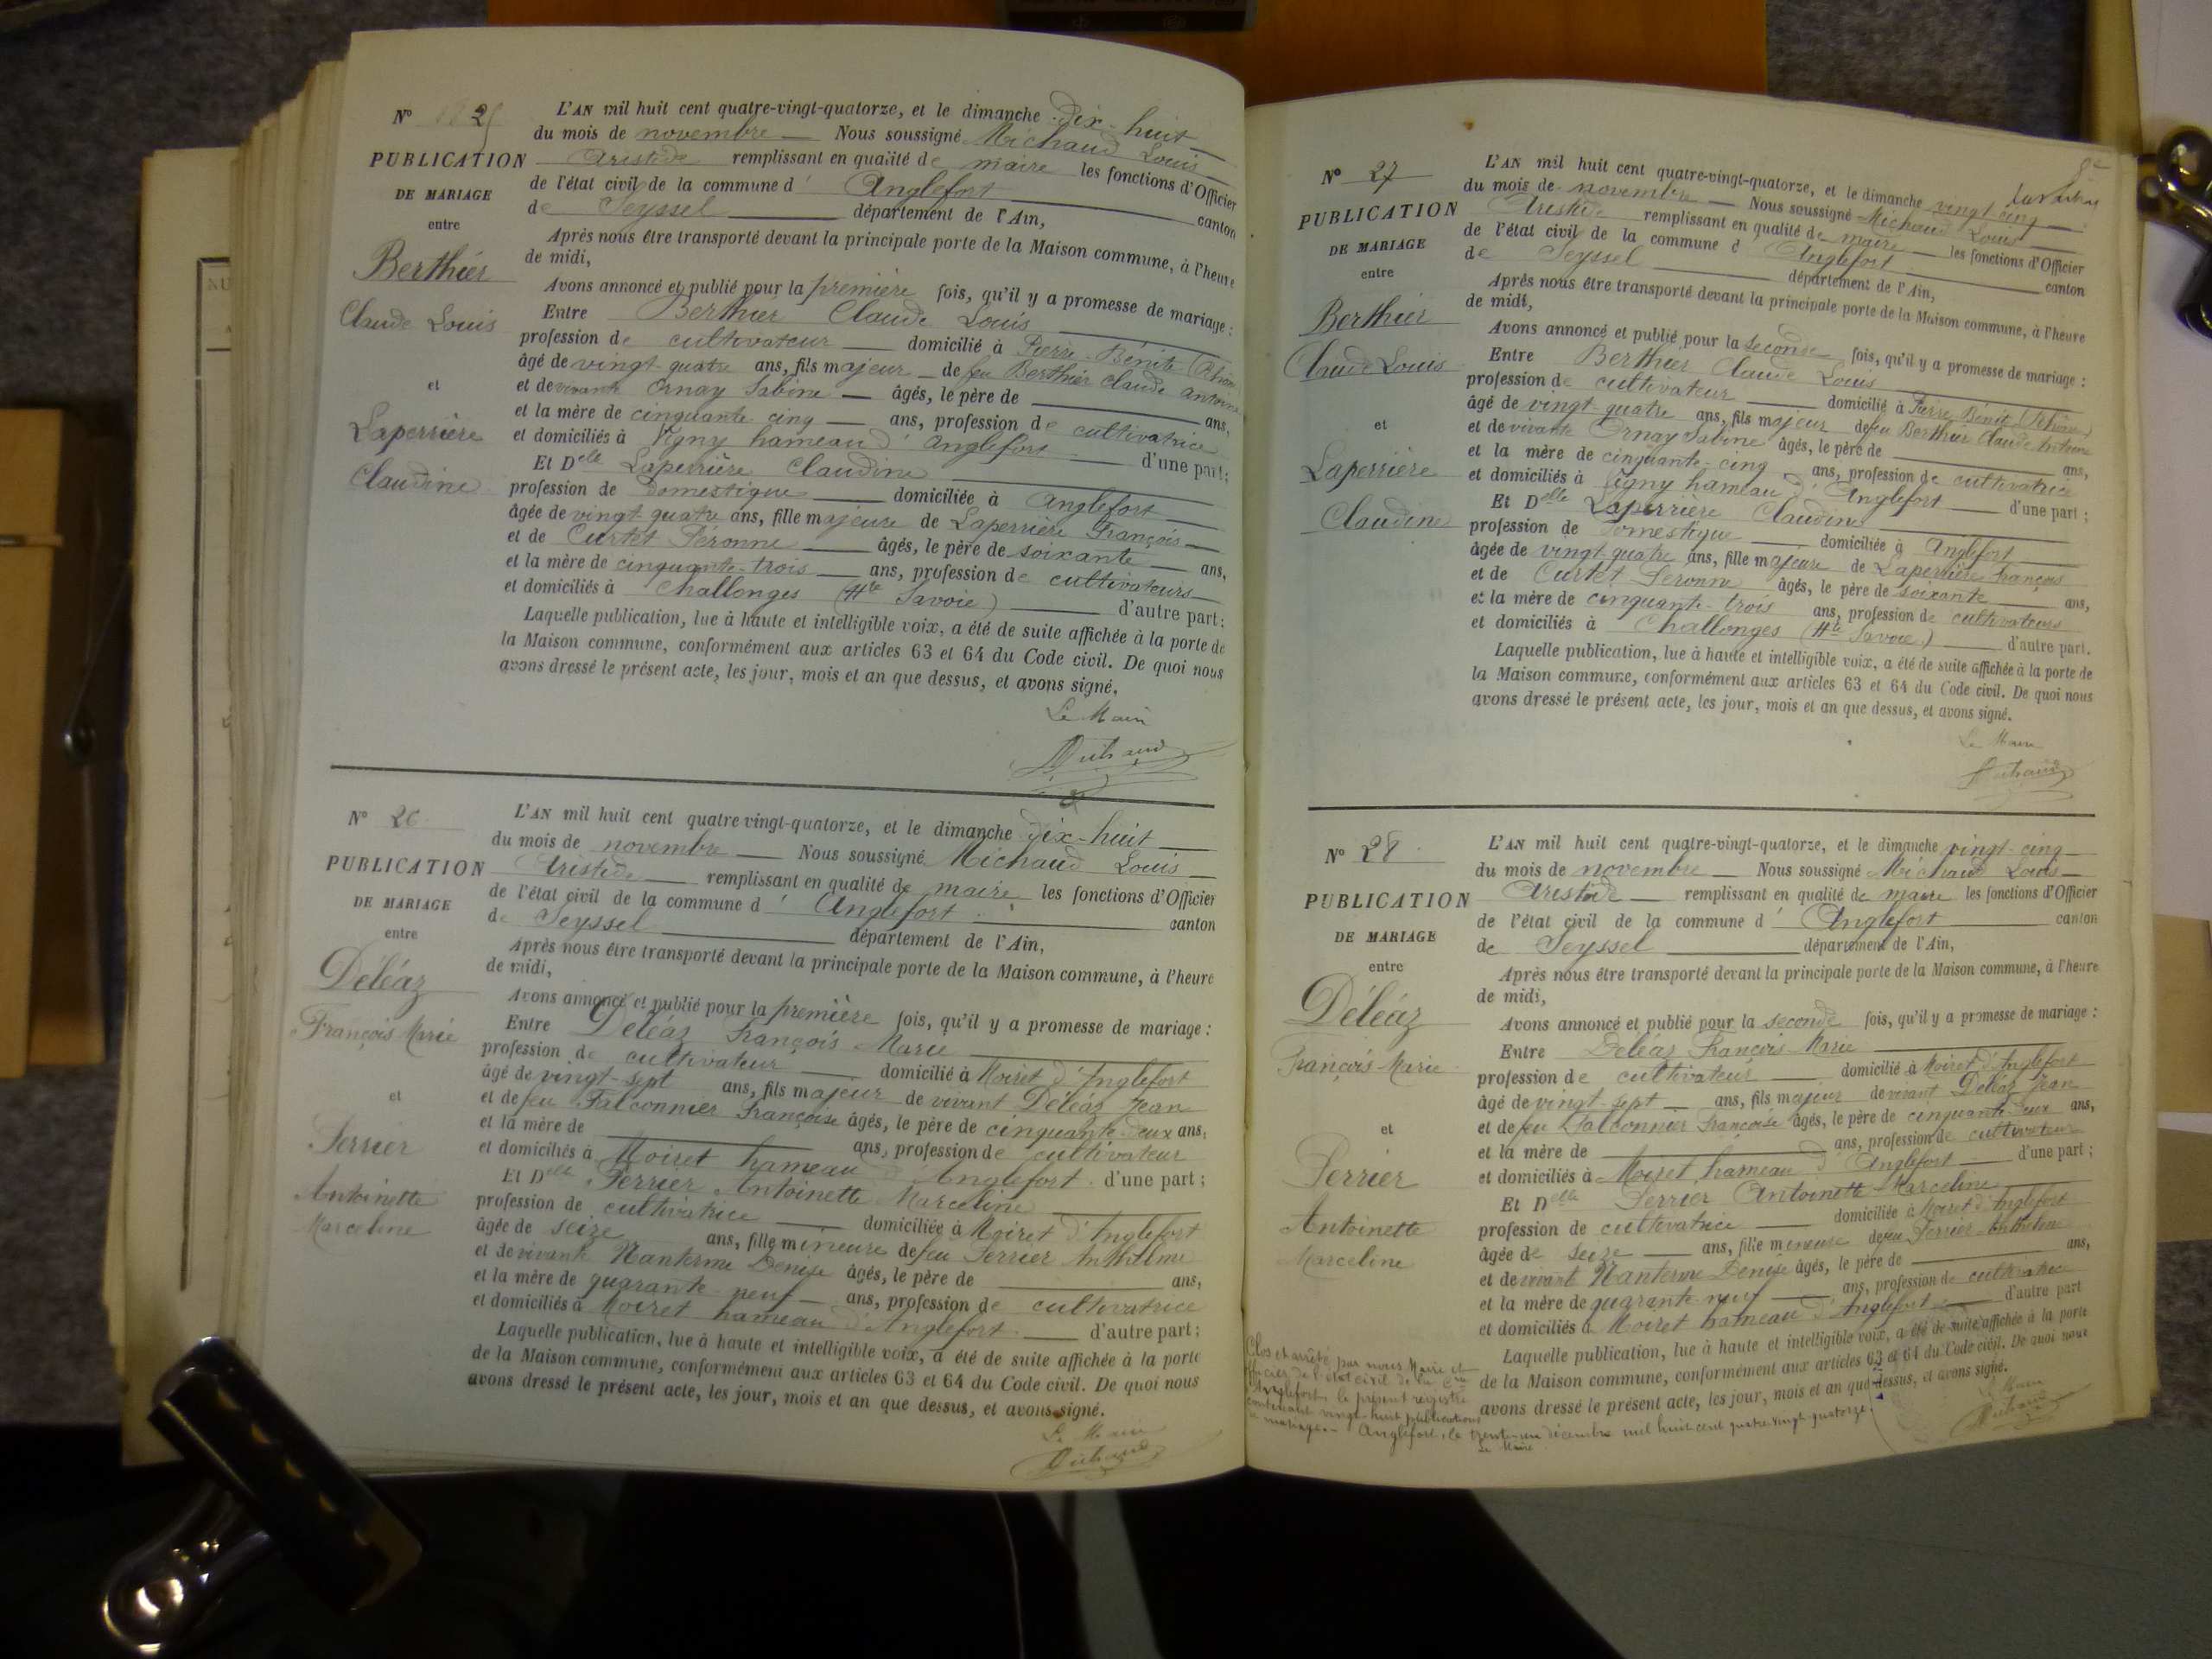 N° 25
PUBLICATION
DE MARIAGE
entre
Berthier
Claude Louis
et
Laperrière
Claudine
L'AN mil huit cent quatre-vingt-quatorze, et le dimanche dix-huit
du mois de novembre Nous soussigné Michaud Louis
Aristide remplissant en qualité de maire les fonctions d'Officier
de l'état civil de la commune d' Anglefort canton
de Seyssel département de l'Ain,
Après nous être transporté devant la principale porte de la Maison commune, à l'heure
de midi,
Avons annoncé et publié pour la première fois, qu'il y a promesse de mariage :
Entre Berthier Claude Louis
profession de cultivateur domicilié à Pierre-Bénite (Rhône
âgé de vingt-quatre ans, fils majeur de feu Berthier Claude Antoine
et de vivante Ornay Sabine âgés, le père de ans,
et la mère de cinquante cinq ans, profession de cultivatrice
et domiciliés à Vigny hameau d'Anglefort d'une part;
Et Delle Laperrière Claudine
profession de domestique domiciliée à Anglefort
âgée de vingt-quatre ans, fille majeure de Laperrière François
et de Curtet Péronne âgés, le père de soixante ans,
et la mère de cinquante-trois ans, profession de cultivateurs
et domiciliés à Challonges (Hte Savoie) d'autre part;
Laquelle publication, lue à haute et intelligible voix, a été de suite affichée à la porte de
la Maison commune, conformément aux articles 63 et 64 du Code civil. De quoi nous
avons dressé le présent acte, les jour, mois et an que dessus, et avons signé,
Le Maire
Michaud
N° 26
PUBLICATION
DE MARIAGE
entre
Déléaz
François Marie
et
Perrier
Antoinette
Marceline
L'AN mil huit cent quatre vingt-quatorze, et le dimanche dix-huit
du mois de novembre Nous soussigné Michaud Louis
Aristide remplissant en qualité de maire les fonctions d'Officier
de l'état civil de la commune d' Anglefort canton
de Seyssel département de l'Ain,
Après nous être transporté devant la principale porte de la Maison commune, à l'heure
de midi,
Avons annoncé et publié pour la première fois, qu'il y a promesse de mariage :
Entre Déléaz François Marie
profession de cultivateur domicilié à Moiret d'Anglefort
âgé de vingt-sept ans, fils majeur de vivant Déléaz Jean
et de feu Falconnier Françoise âgés, le père de cinquante-deux ans,
et la mère de ans, profession de cultivateur
et domiciliés à Moiret hameau d'Anglefort d'une part ;
Et Delle Perrier Antoinette Marceline
profession de cultivatrice domiciliée à Moiret d'Anglefort
âgée de seize ans, fille mineure de feu Perrier Anthelme
et de vivante Nanterme Denise âgés, le père de ans,
et la mère de quarante-neuf ans, profession de cultivatrice
et domiciliés à Moiret hameau d'Anglefort d'autre part;
Laquelle publication, lue à haute et intelligible voix, a été de suite affichée à la porte
de la Maison commune, conformément aux articles 63 et 64 du Code civil. De quoi nous
avons dressé le présent acte, les jour, mois et an que dessus, et avons signé.
Le Maire
Michaud
N° 27
PUBLICATION
DE MARIAGE
entre
Berthier
Claude Louis
et
Laperrière
Claudine
L'AN mil huit cent quatre-vingt-quatorze, et le dimanche vingt cinq
du mois de novembre Nous soussigné Michaud Louis
Aristide remplissant en qualité de maire les fonctions d'Officier
de l'état civil de la commune d' Anglefort canton
de Seyssel département de l'Ain,
Après nous être transporté devant la principale porte de la Maison commune, à l'heure
de midi,
Avons annoncé et publié pour la seconde fois, qu'il y a promesse de mariage :
Entre Berthier Claude Louis
profession de cultivateur domicilié à Pierre Bénite (Rhône)
âgé de vingt-quatre ans, fils majeur de feu Berthier Claude Antoine
et de vivante Ornay Sabine âgés, le père de ans,
et la mère de cinquante-cinq ans, profession de cultivatrice
et domiciliés à Vigny hameau d'Anglefort d'une part ;
Et Delle Laperrière Claudine
profession de domestique domiciliée à Anglefort
âgée de vingt quatre ans, fille majeure de Laperrière François
et de Curtet Péronne âgés, le père de soixante ans,
et la mère de cinquante-trois ans, profession de cultivateurs
et domiciliés à Challonges (Hte Savoie) d'autre part.
Laquelle publication, lue à haute et intelligible voix, a été de suite affichée à la porte de
la Maison commune, conformément aux articles 63 et 64 du Code civil. De quoi nous
avons dressé le présent acte, les jour, mois et an que dessus, et avons signé.
Le Maire
Michaud
N° 28
PUBLICATION
DE MARIAGE
entre
Déléaz
François Marie
et
Perrier
Antoinette
Marceline
L'AN mil huit cent quatre-vingt-quatorze, et le dimanche vingt-cinq
du mois de novembre Nous soussigné Michaud Louis
Aristide remplissant en qualité de maire les fonctions d'Officier
de l'état civil de la commune d' Anglefort canton
de Seyssel département de l'Ain,
Après nous être transporté devant la principale porte de la Maison commune, à l'heure
de midi,
Avons annoncé et publié pour la seconde fois, qu'il y a promesse de mariage :
Entre Déléaz François-Marie
profession de cultivateur domicilié à Moiret d'Anglefort
âgé de vingt-sept ans, fils majeur de vivant Déléaz Jean
et de feu Falconnier Françoise âgés, le père de cinquante-deux ans,
et la mère de ans, profession de cultivateur
et domiciliés à Moiret hameau d'Anglefort d'une part ;
Et Delle Perrier Antoinette-Marceline
profession de cultivatrice domiciliée à Moiret d'Anglefort
âgée de seize ans, fille mineure de feu Perrier Anthelme
et de vivante Nanterme Denise âgés, le père de ans,
et la mère de quarante-neuf ans, profession de cultivatrice
et domiciliés à Moiret hameau d'Anglefort d'autre part
Laquelle publication, lue à haute et intelligible voix, a été de suite affichée à la porte
de la Maison commune, conformément aux articles 63 et 64 du Code civil. De quoi nous
avons dressé le présent acte, les jour, mois et an que dessus, et avons signé.
Le Maire
Michaud
Clos et arrêté par nous Maire et
officier de l'état civil de la Cne
d'Anglefort le présent registre
contenant vingt-huit publications
de mariage. Anglefort, le trente-un décembre mil huit cent quatre-vingt-quatorze.
Le Maire